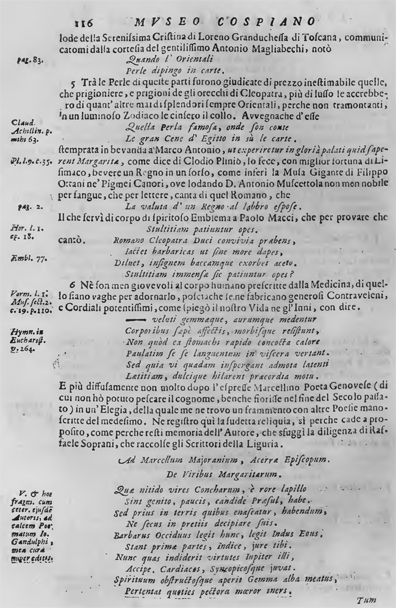 116 MVSEO COSPIANO
lode della Serenissima Cristina di Loreno Granduchessa di Toscana, communi-
catomi dalla cortesia del gentilissimo Antonio Magliabechi, notò
pag. 83. Quando l' Orientali
Perle dipingo in carte.
5 Trà le Perle di queste parti furono giudicate di prezzo inestimabile quelle,
che prigioniere, e prigioni de gli orecchi di Cleopatra, più di lusso le accrebbe-
ro di quant' altre mai di splendori sempre Orientali, perche non tramontanti,
'n un luminoso Zodiaco le cinsero il collo. Avvegnache d'esse
Claud. Achillin. p. mihi 63.
Quella Perla famosa, onde fon conte
Le gran Cene d' Egitto in sù le carte.
stemprata in bevanda à Marco Antonio, ut experiretur in glorià palati quid sape-
Pl. l. 9. c. 35. rent Margaritæ, come dice di Clodio Plinio, lo fece, con miglior fortuna di Li-
simaco, bevere un Regno in un sorso, come inferì la Musa Gigante di Filippo
Ottani ne' Pigmei Canori, ove lodando D. Antonio Muscettola non men nobile
per sangue, che per lettere, canta di quel Romano, che
pag. 2. La valuta d' un Regno al labbro espose.
Il che servì di corpo di spiritoso Emblema a Paolo Macci, che per provare che
Hor. l. 1. ep. 18. Stultitiam patiuntur opes.
cantò. Romano Cleopatra Duci convivia præbens,
Iactet barbaricas ut sine more dapes,
Embl. 77. Diluit, insignem baccamque exorbet aceto.
Stultitiam immensæ sic patiuntur opes?
6 Nè son men giovevoli al corpo humano prescritte dalla Medicina, di quel-
lo siano vaghe per adornarlo, posciache se ne fabricano generosi Contraveleni,
Vorm. l. 1. Mus. sect. 2. c. 19. p. 110.
e Cordiali potentissimi, come spiegò il nostro Vida ne gl' Inni, con dire.
— veluti gemmæque, aurumque medentur
Hymn. in Eucharist. p. 264.
Corporibus sæpè affectis, morbisque resistunt,
Non quòd ea stomachi rapido concocta calore
Paulatim se se languentum in viscera vertant.
Sed quia vi quadam inspergunt admota latenti
Latitiam, dulcique hilarent præcordia motu.
E più diffusamente non molto dopo l' espresse Marcellino Poeta Genovese (di
cui non hò potuto pescare il cognome, benche fiorisse nel fine del Secolo passa-
to) in un' Elegia, della quale me ne trovo un frammento con altre Poesie mano-
scritte del medesimo. Ne registro quì la sudetta reliquia, sì perche cade a pro-
posito, come perche resti memoria dell' Autore, che sfuggì la diligenza di Raf-
faele Soprani, che raccolse gli Scrittori della Liguria.
Ad Marcellum Majoranium, Acerræ Episcopum.
De Viribus Margaritarum.
V. & hoc fragm. cum ceter. ejusdē Autoris, ad calcem Poe-matum Io. Gandulphi, mea cura nuper editus.
Quæ nitido vires Concharum, è rore lapillo
Sint genito, paucis, candide Præsul, habe.
Sed prius in terris quibus enascatur, habendum,
Ne secus in pretiis decipiare suis.
Barbarus Occiduus legit hunc, legit Indus Eous,
Stant primæ partes, Indice, jure tibi.
Nunc quas indiderit virtutes Iupiter illi,
Accipe. Cardiacos, Syncopicosque juvat.
Spirituum obstructosque aperit Gemma alba meatus,
Pertentat quoties pectora mæror iners.
Tum